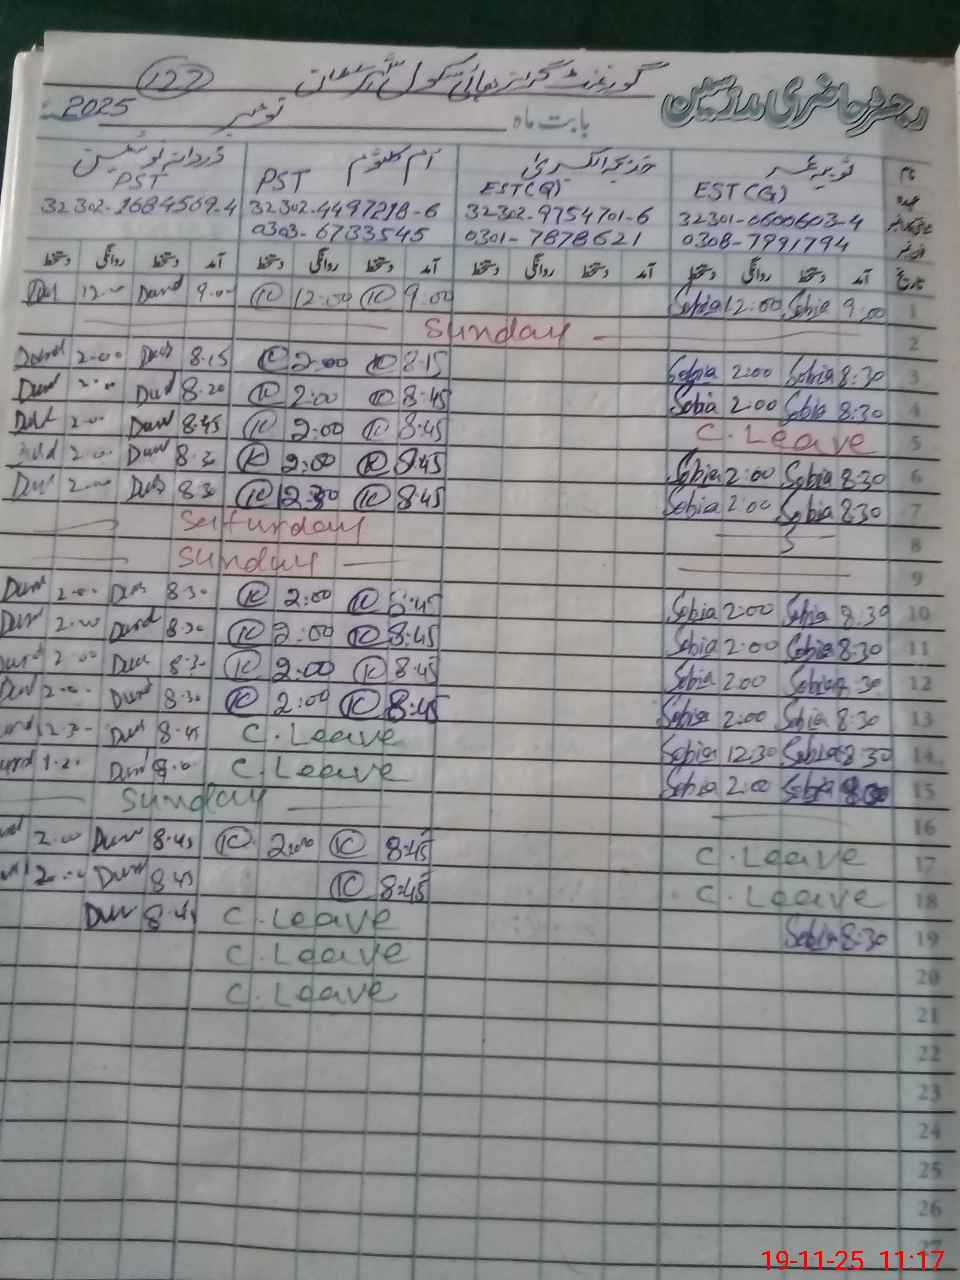 رجسٹر حاضری مدرسین گورنمنٹ گرلز ہائی سکول 127
بابت ماہ نومبر 2025
نام ام کلثوم
عہدہ EST(G) EST(G) PST PST
32301-0600603-4 32302-9754701-6 32302-4497218-6 32302-1684569-4
0308-7991794 0301-7878621 0303-6733545
تاریخ آمد دستخط روانگی دستخط آمد دستخط روانگی دستخط آمد دستخط روانگی دستخط آمد دستخط روانگی دستخط
1 9:00 Sobia 12:00 Sobia 9:00 K 12:00 K 9.00 12.00
2 Sunday
3 8:30 Sobia 2:00 Sobia 8:15 K 2:00 K 8.15 2.00
4 8:30 Sobia 2:00 Sobia 8:45 K 2:00 K 8.20 2.00
5 C. Leave 8:45 K 2:00 K 8.45 2.00
6 8:30 Sobia 2:00 Sobia 8:45 K 2:00 K 8.30 2.00
7 8:30 Sobia 2:00 Sobia 8:45 K 12:30 K 8.30 2.00
8 Saturday
9 Sunday
10 8:30 Sobia 2:00 Sobia 8:45 K 2:00 K 8.30 2.00
11 8:30 Sobia 2:00 Sobia 8:45 K 2:00 K 8.30 2.00
12 8:30 Sobia 2:00 Sobia 8:45 K 2:00 K 8.30 2.00
13 8:30 Sobia 2:00 Sobia 8:45 K 2:00 K 8.30 2.00
14 8:30 Sobia 12:30 Sobia C. Leave 8.45 12.30
15 Sobia 2:00 Sobia C. Leave 9.0 1.20
16 Sunday
17 C. Leave 8:45 K 2:00 K 8.45 2.00
18 C. Leave 8:45 K 8.45 2.00
19 8:30 Sobia C. Leave 8.45
20 C. Leave
21 C. Leave
22
23
24
25
26
27
19-11-25 11:17